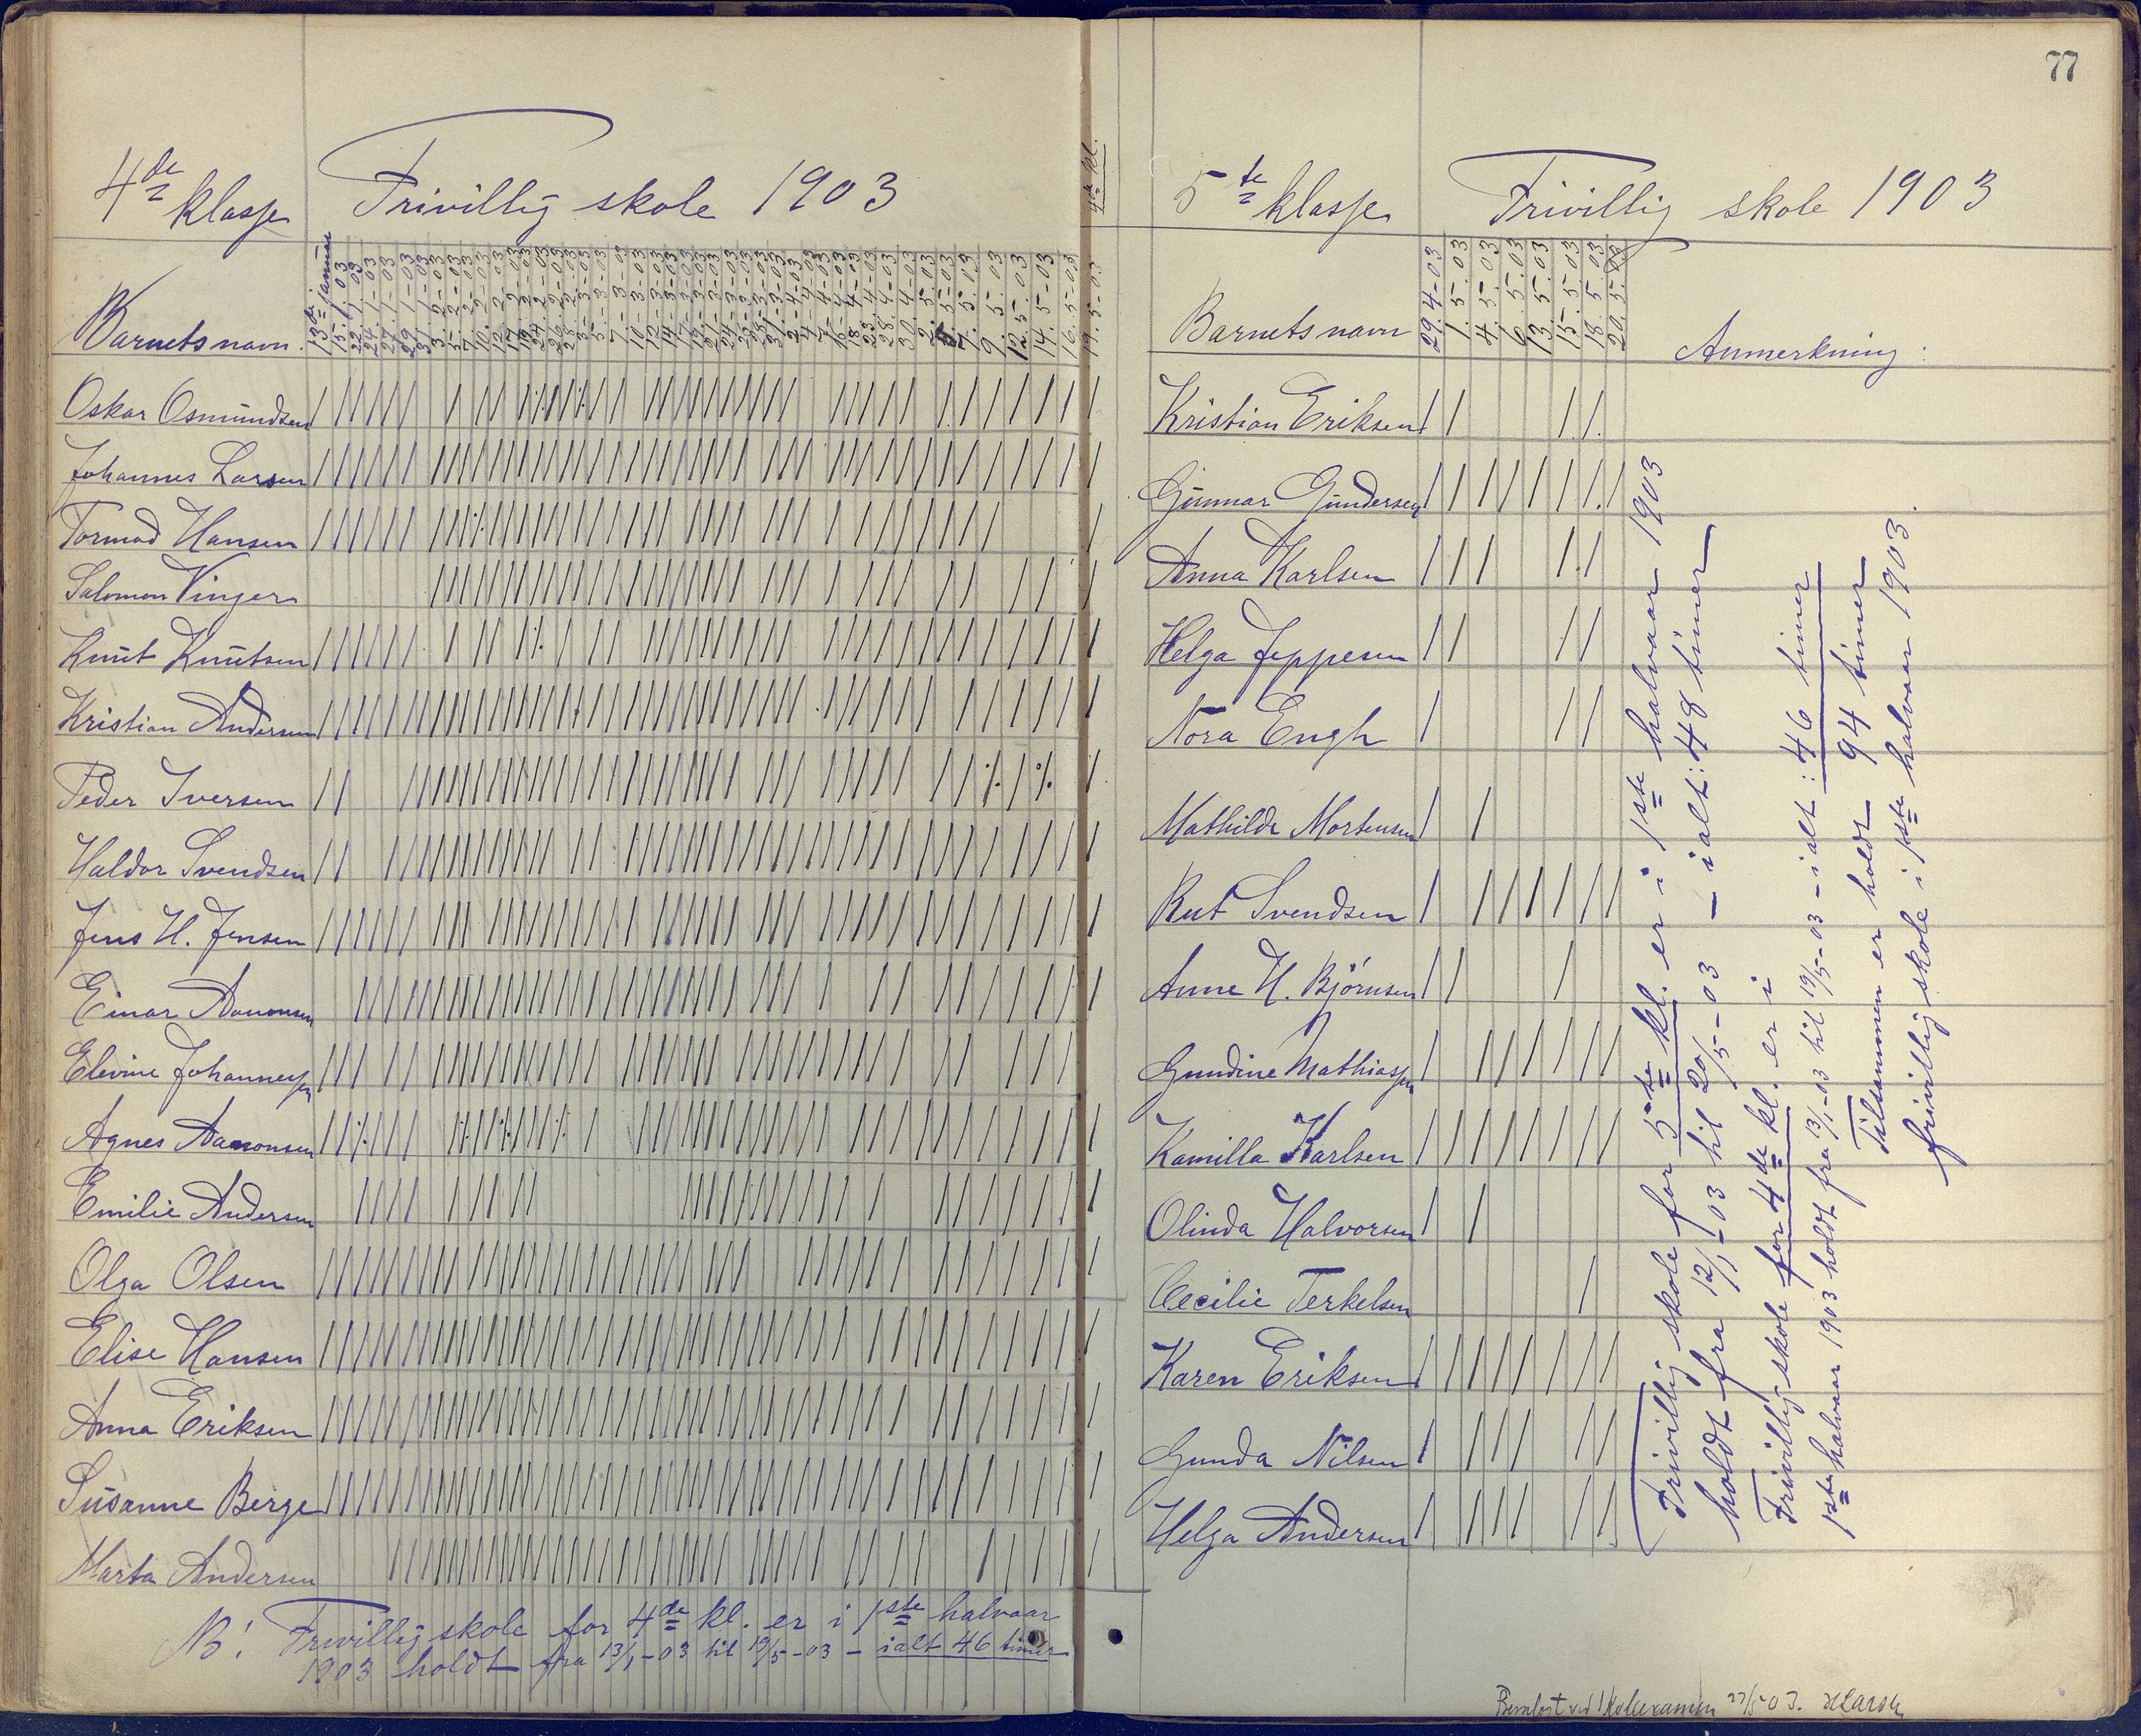 77
4de klasse Frivillig skole 1903
Barnets navn.
13de januar
15. 1. 03
Oskar Osmundsen
Johannes Larsen
Tormod Hansen
Salomon Vinger
Knut Knutsen
Kristian Andersen
Peder Iversen
Haldor Svendsen
Jens H. Jensen
Einar Aanonsen
Elevine Johannessen
Agnes Aanonsen
Emilie Andersen
Olga Olsen
Elise Hansen
Anna Eriksen
Susanne Berge
Marta Andersen
NB! Frivillig skole for 4de kl. er i 1ste halvaar
1903 holdt fra 13/1-03 til 19/5-03 - ialt 46 timer
4de kl.
19. 5-03
5te klasse Frivillig skole 1903
Barnets navn
29. 4-03
1. 5. 03
4. 5. 03
6. 5. 03
13. 5. 03
15. 5-03
18. 5. 03
20. 5. 03
Anmerkning:
Kristian Eriksen
Gunnar Gundersen
Anna Karlsen
Helga Jeppesen
Nora Engh
Mathilde Mortensen
Rut Svendsen
Anne H. Bjørnsen
Gundine Mathiassen
Kamilla Karlsen
Olinda Halvorsen
Cecilie Terkelsen
Karen Eriksen
Gunda Nilsen
Helga Andersen
Frivillig skole for 5te kl. er i 1ste halvaar 1903
holdt fra 12/1-03 til 20/5-03 - ialt: 48 timer
Frivillig skole for 4de kl. er i
1ste halvaar 1903 holdt fra 13/1-03 til 19/5-03 - ialt: 46 timer
Tilsammen er holdt 94 timer
frivillig skole i 1ste halvaar 1903.